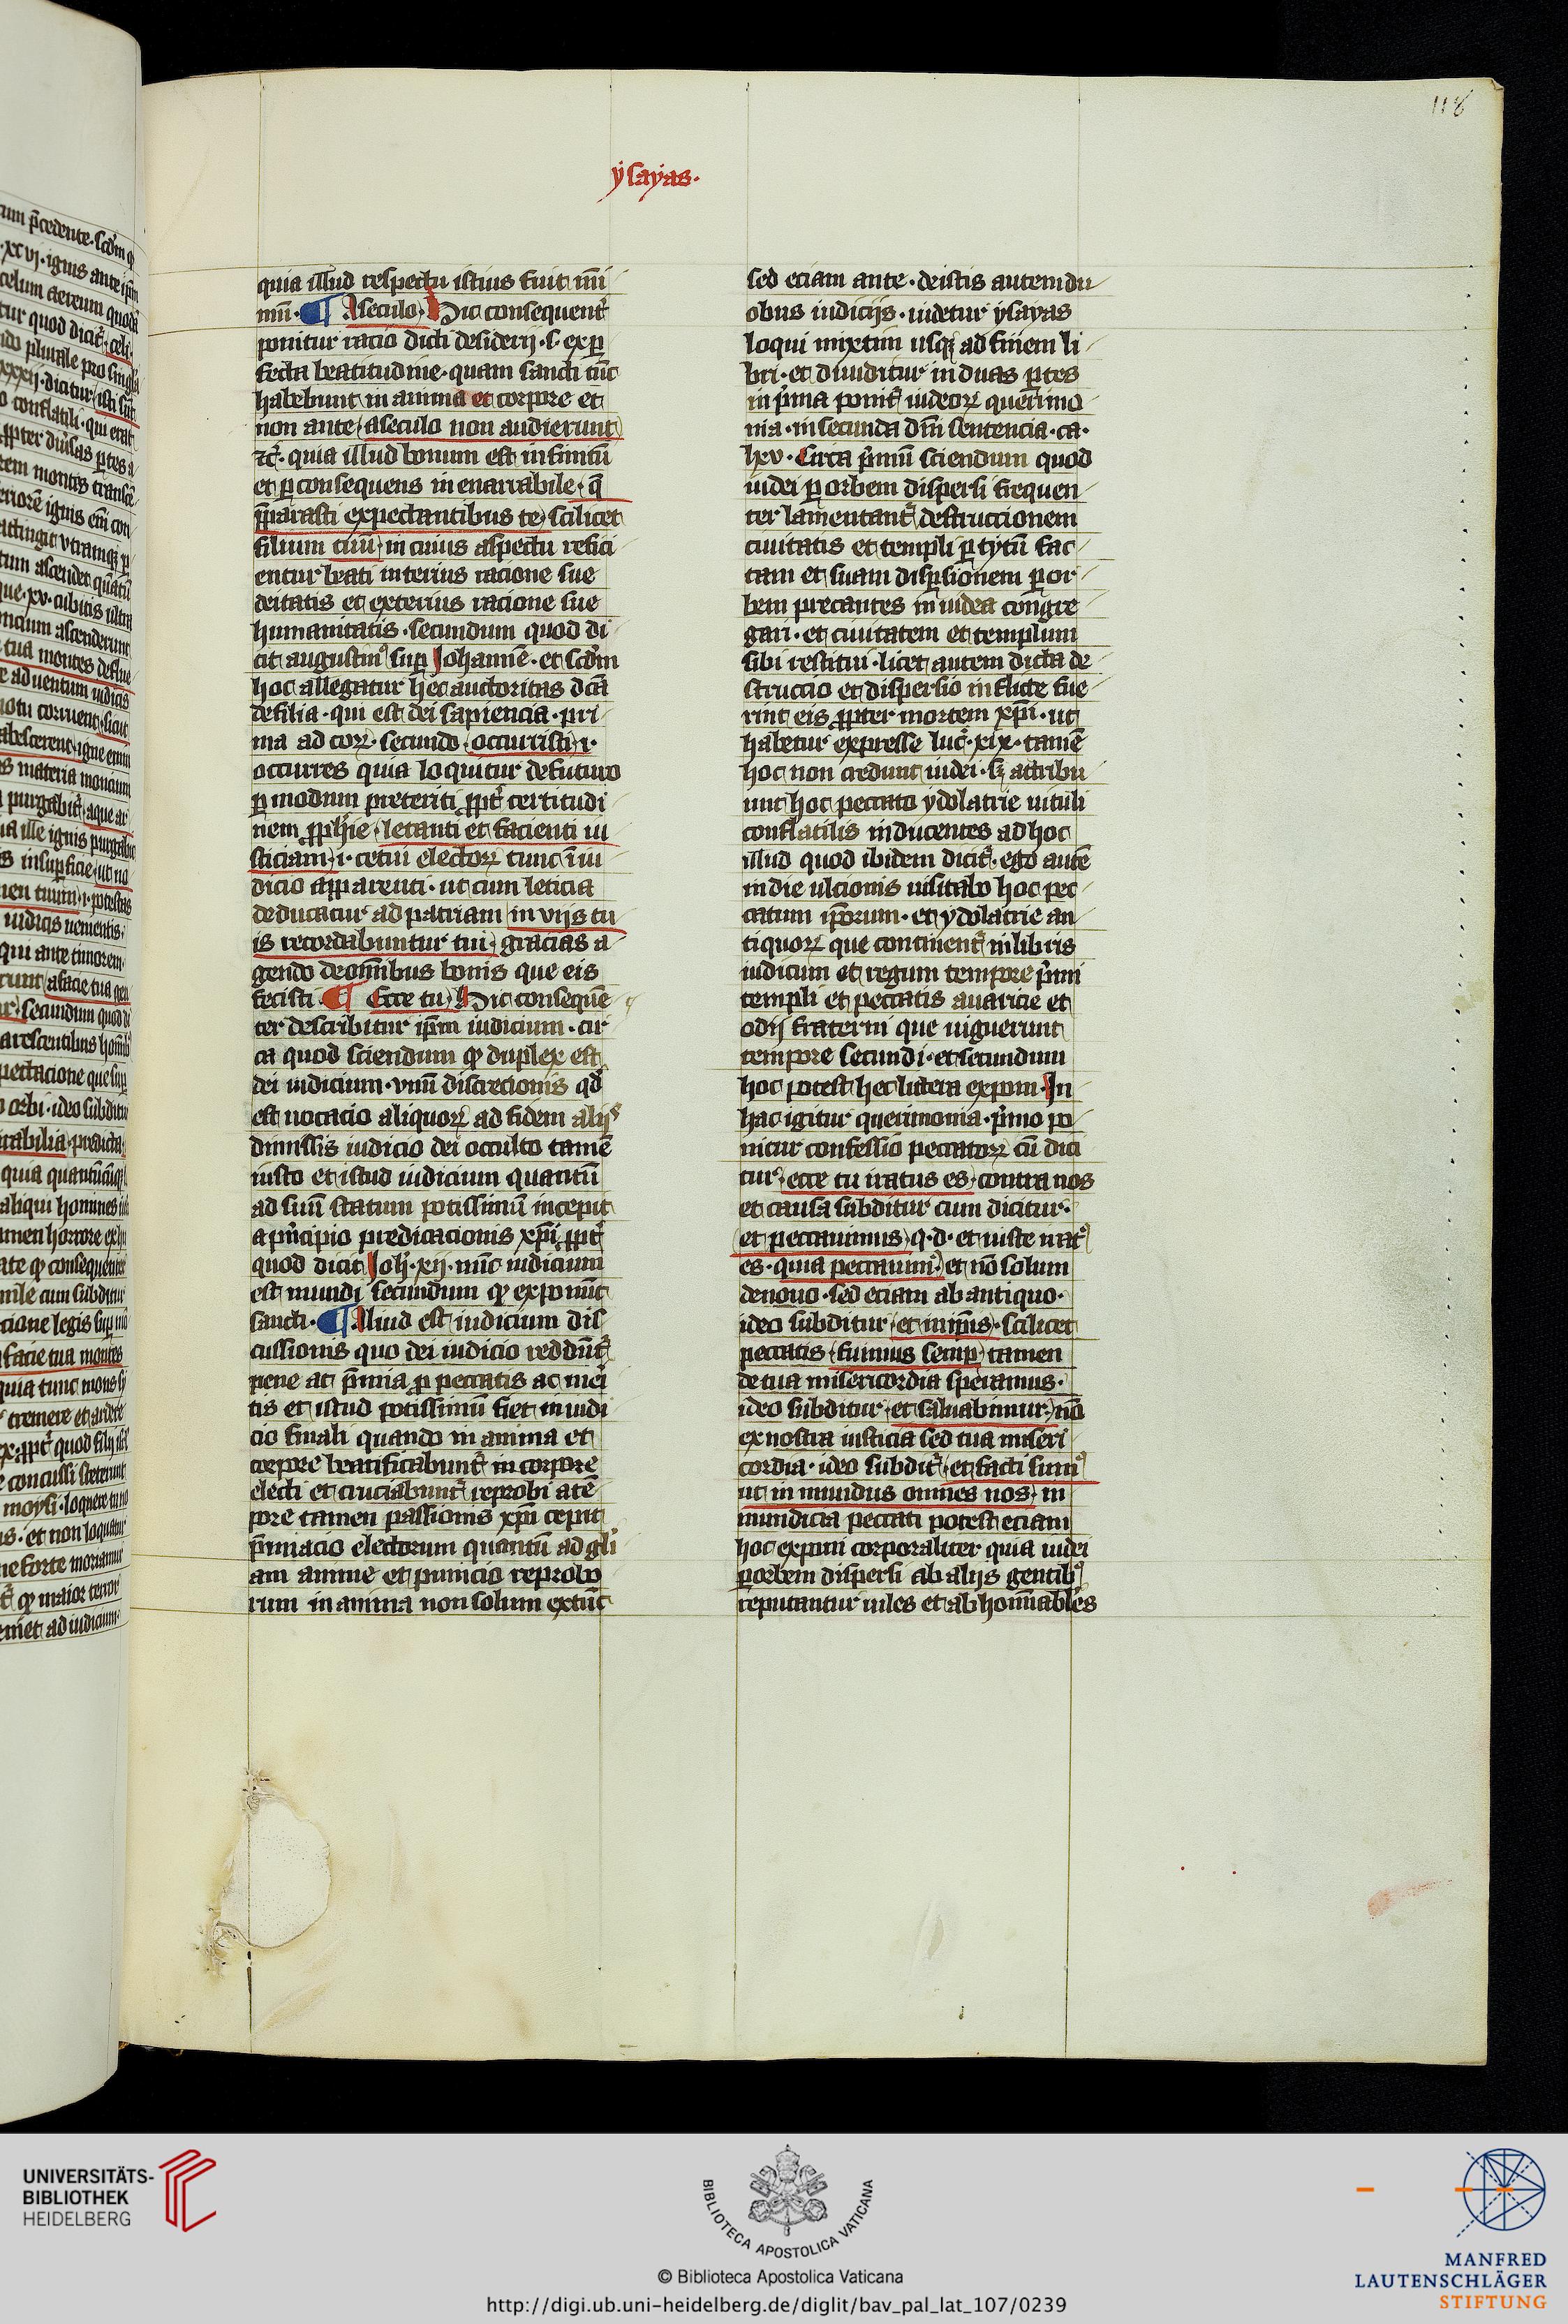 118
ysayas.
quia illud respectu istius fuit mı̄ı
mū. ¶ A seculo. Hic consequent᷑
ponitur racio dicti desiderij .s. exp̲
fecta beatitudine. quam sancti tūc
habebunt in anima et corpore et
non ante aseculo non audierunt
⁊c̄. quia illud bonum est infinitū
et p̲ consequens inenarrabile. q̄
p̄parasti expectantibus te scilicet
filium tuū in cuius aspectu refici
entur beati interius racione sue
deitatis et exterius racione sue
humanitatis. secundum quod di
cit augustinꝰ sup̲ Johannē. et scd̄m
hoc allegatur hec auctoritas dc̄a
de filia. qui est dei sapiencia. pri
ma ad corꝝ. secundo occurristi .i.
occurres quia loquitur defuturo
p̲ modum preteriti ꝓpt᷑ certitudi
nem ꝓph̄ie letanti et facienti iu
sticiam .i. cetui electorꝝ tunc ī iu
dicio apparenti. ut cum leticia
deducatur ad patriam in viis tu
is recordabuntur tui gracias a
gendo de om̄ibus bonis que eis
fecisti ¶ Ecce tu Hic consequē
ter describitur ip̄m iudicium. cir
ca quod sciendum ꝙ duplex est
dei iudicium. vnū discrecionis qd̄
est uocacio aliquorꝝ ad fidem alijs
dimissis iudicio dei occulto tamē
iusto et istud iudicium quantū
ad suū statum potissimū incepit
a p̄ncipio predicacionis xp̄i ꝓpt᷑
quod dicit Joh̄. xij. nūc iudicium
est mundi secundum ꝙ exponūt
sancti. ¶ Aliud est iudicium dis
cussionis quo dei iudicio reddūt᷑
pene ac p̄mia ꝓ peccatis ac meri
tis et istud potissimū fiet in iudi
cio finali quando in anima et
corpore beatificabunt᷑ in corpore
electi et cruciabunt᷑ reprobi a tē
pore tamen passionis xp̄i cepit
p̄miacio electorum quantū ad gl̄i
am anime et punicio reprobo
rum in anima non solum ex tūc
sed eciam ante. de istis autem du
obus iudicijs. uidetur ysayas
loqui mixtim usqꝫ ad finem li
bri. et diuiditur in duas p̲tes
in p̄ma ponit᷑ iudeorꝝ querimo
nia. in secunda dn̄i sentencia. ca.
lxv. Circa p̄mū sciendum quod
iudei p̲ orbem dispersi frequen
ter lamentant᷑ destruccionem
ciuitatis et templi p̲ tytū fac
tam et suam disp̲sionem p̲ or
bem precantes in iudea congre
gari. et ciuitatem et templum
sibi restitui. licet autem dicta de
struccio et dispersio inflicte fue
rint eis ꝓpter mortem xp̄i. ut
habetur expresse luc̄. xix. tamē
hoc non credunt iudei. sꝫ attribu
unt hoc peccato ydolatrie uituli
conflatilis inducentes ad hoc
illud quod ibidem dicit᷑. ego autē
in die ulcionis uisitabo hoc pec
catum ip̄orum. et ydolatrie an
tiquorꝝ que continent᷑ in libris
iudicum et regum tempore p̄mi
templi et peccatis auaricie et
odij fraterni que uiguerunt
tempore secundi. et secundum
hoc potest hec littera exponi. In
hac igitur querimonia. p̄mo po
nitur confessio peccatorꝝ cū dici
tur. ecce tu iratus es contra nos
et causa subditur cum dicitur.
et peccauimus .q.d. et iuste irat᷑
es. quia peccauimꝰ et nō solum
denouo. sed eciam ab antiquo.
ideo subditur et in ip̄is. scilicet
peccatis fuimus semp̲ tamen
de tua misericordia speramus.
ideo subditur. et saluabimur. nō
ex nostra iusticia sed tua miseri
cordia. ideo subdit᷑. et facti sumꝰ
ut in mundus omnes nos in
mundicia peccati potest eciam
hoc exponi corporaliter quia iudei
p̲ orbem dispersi ab alijs gentibꝰ
reputantur uiles et abhoīnabiles
UNIVERSITÄTS-
BIBLIOTHEK
HEIDELBERG
BIBLIOTECA APOSTOLICA VATICANA
© Biblioteca Apostolica Vaticana
http://digi.ub.uni-heidelberg.de/diglit/bav_pal_lat_107/0239
MANFRED
LAUTENSCHLÄGER
STIFTUNG